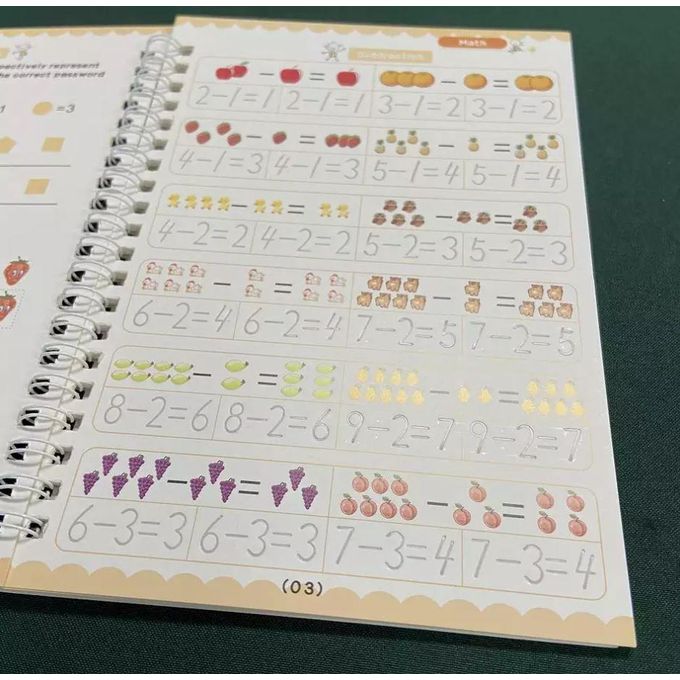 pectively represent
he correct password
1
=3
Math
Subtraction
- = - =
2-1=1 2-1=1 3-1=2 3-1=2
- = - =
4-1=3 4-1=3 5-1=4 5-1=4
- = - =
4-2=2 4-2=2 5-2=3 5-2=3
- = - =
6-2=4 6-2=4 7-2=5 7-2=5
- = - =
8-2=6 8-2=6 9-2=7 9-2=7
- = - =
6-3=3 6-3=3 7-3=4 7-3=4
(03)